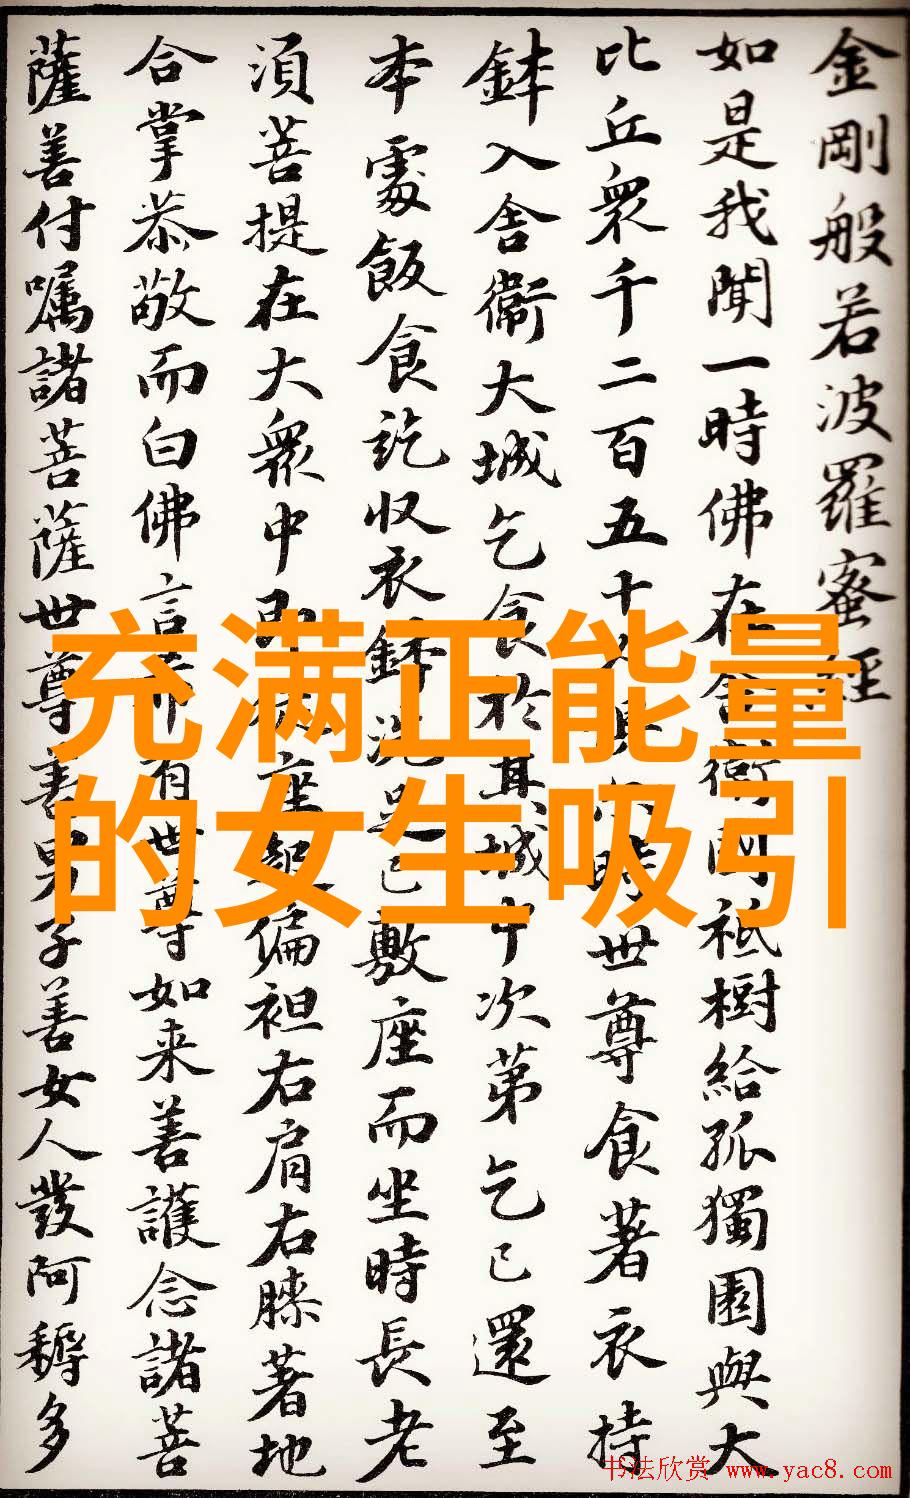 金剛般若波羅蜜經
如是我聞一時佛在舍衛國祇樹給孤獨園與大
比丘眾千二百五十人俱尒時世尊食著衣持
鉢入舍衛大城乞食於其城中次第乞已還至
本處飯食訖收衣鉢洗足已敷座而坐時長老
須菩提在大眾中即從座起偏袒右肩右膝著地
合掌恭敬而白佛言希有世尊如来善護念諸菩
薩善付嘱諸菩薩世尊善男子善女人發阿耨多
充满正能量
的女生吸引
书法欣赏 www.yac8.com